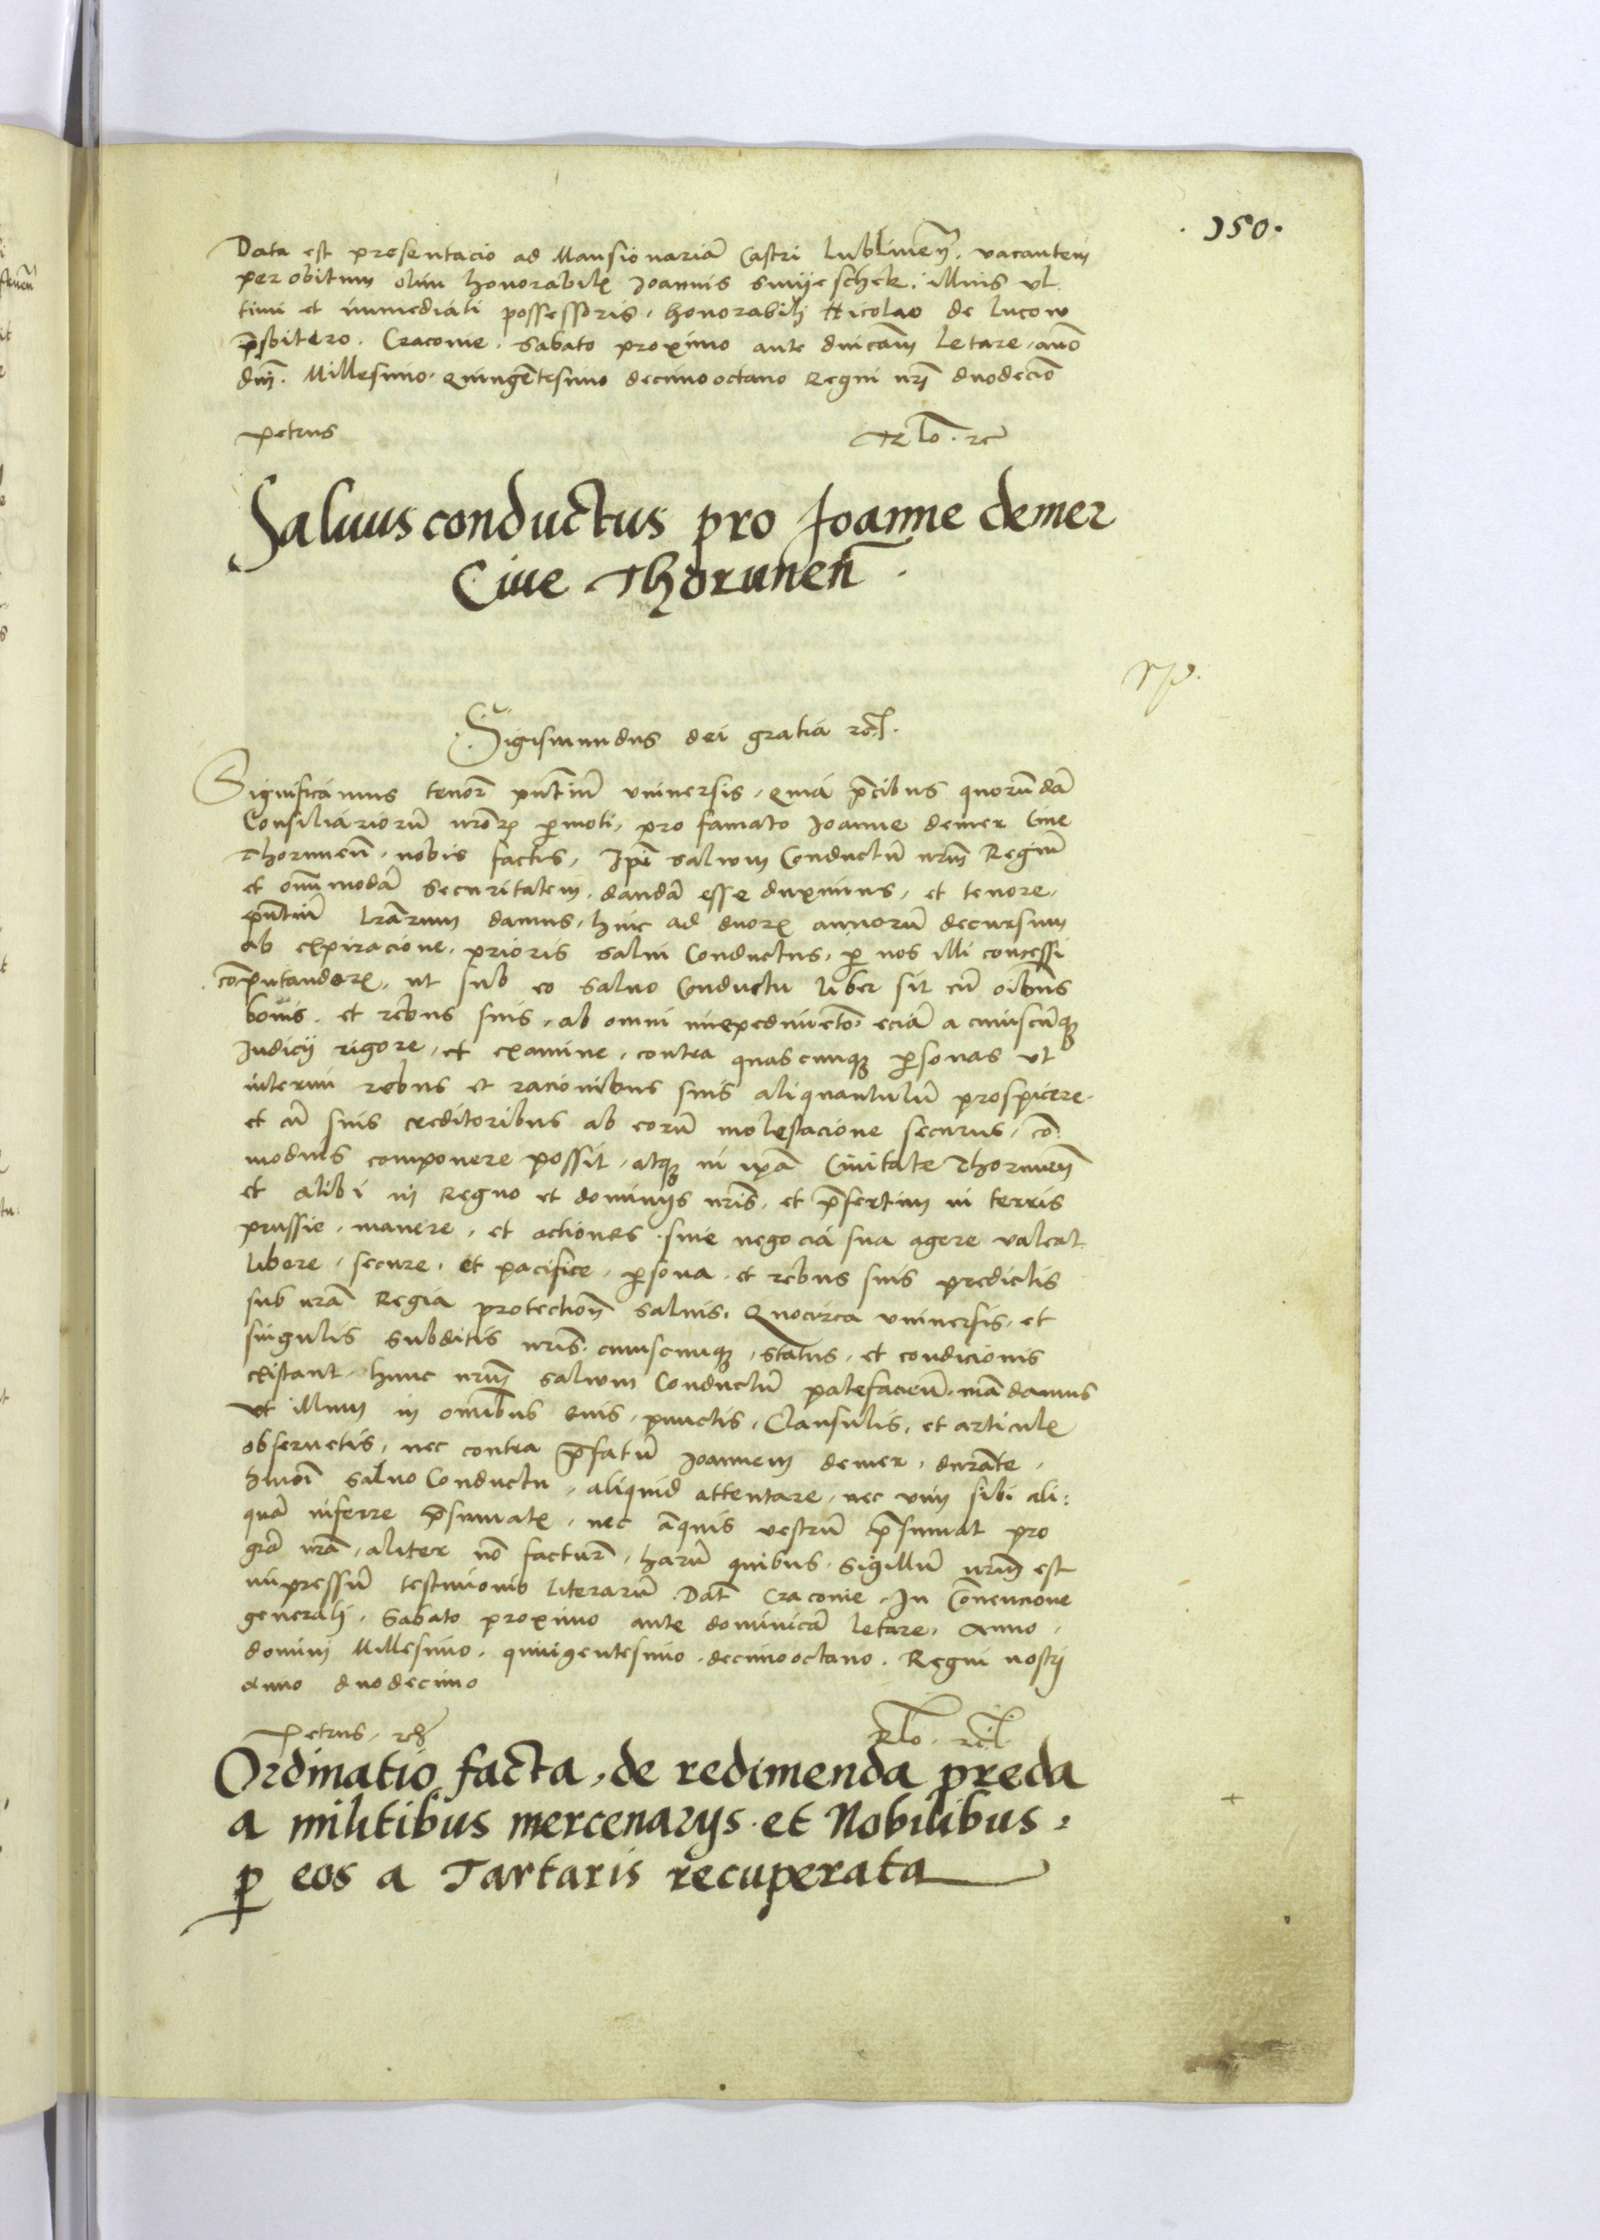 . 150 .
Data est presentacio ad Mansionariã Castri lublineñ. vacantem
per obitum olim honorabilꝭ Joannis smyeschek. illius vl
timi et immediati possessoris, honorabilj Nicolao de lucow
p̃sbitero. Cracovie. Sabato proximo ante dnicam letare, ano
dnj. Millesimo. Quingẽtesimo decimooctavo Regni nrj duodecio
petrus
Saluus conductus pro Joanne demer
Ciue Thorunen̄ .
Sigismundus dei gratia rcł.
Significamus tenorẽ pñtium vniversis, quia p̃cibus quorundã
Consiliariorũ nrorꝫ ꝑmoti, pro famato Joanne demer Ciue
Thoruneñ. nobis factis, Ipĩ salvum Conductũ nrum Regiũ
et omnimodã securitatem. dandã esse duximus, et tenore,
pñtium lrarum damus, hinc ad duorꝫ annorũ decursum
ab expiracione, prioris salui Conductus, ꝑ nos illi concessi
computandorꝫ, ut sub eo saluo Conductu liber sit cũ oibus
bonis. et rebus suis, ab omni impedimẽto, eciã a cuiuscũqꝫ
Iudicij rigore, et examine, contra quascunqꝫ ꝑsonas vt
interim rebus et racionibus suis aliquantulũ prospicere.
et cũ suis creditoribus ab eorũ molestacione securus, co
modius componere possit, atqꝫ in ipã Civitate Thoruneñ
et alibi in Regno et dominijs nris. et p̃sertim in terris
prussie, manere, et actiones siue negocia sua agere valeat
libere, secure, et pacifice, ꝑsona, et rebus suis predictis
sub nrã Regia protectionẽ saluis. Quocirca vniversis, et
singulis subditis nris. cuiuscunqꝫ, status, et condicionis
existant, hunc nrum salvum Conductũ patefaciẽdũ mãdamus
vt illum in omibus suis, punctis, Clausulis, et articulꝭ
obseruetis, nec contra p̃fatũ Joannem demer, durãte,
hmoi saluo Conductu, aliquid attentare, nec vim sibi ali:
quã inferre p̃sumatꝭ, nec aliquis vestrũ p̃sumat pro
grã nrã, aliter nõ facturꝭ, harũ quibus sigillũ nrum est
impressũ testimonio literarũ. Dat̃ Cracovie, In Cõvencione
generalj, Sabato proximo ante dominicã letare, Anno,
domini Millesimo, quingentesimo, decimooctavo, Regni nostrj
anno duodecimo
Petrus,
Ordinatio facta, de redimenda preda
a militibus mercenarijs et Nobilibus,
ꝑ eos a Tartaris recuperata